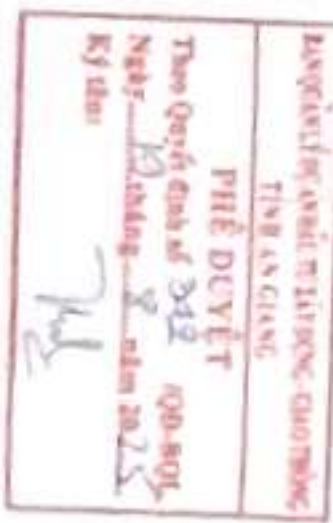 BAN QUẢN LÝ DỰ ÁN ĐẦU TƯ XÂY DỰNG - GIAO THÔNG
TỈNH AN GIANG
PHÊ DUYỆT
Theo Quyết định số /QĐ-BQL
Ngày tháng 8 năm 2025
Ký tên: